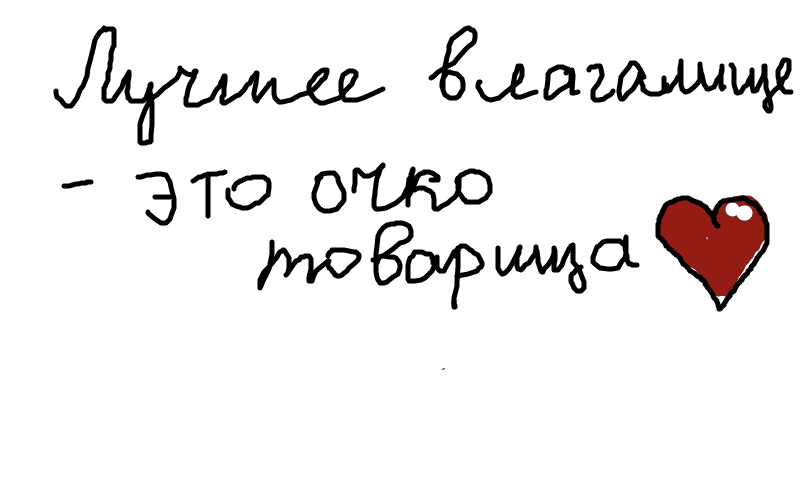 Лучшее влагалище
- это очко
товарища